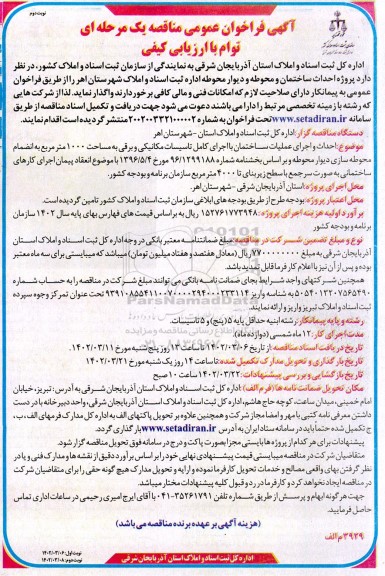 نوبت دوم
آگهی فراخوان عمومی مناقصه یک مرحله ای
توام با ارزیابی کیفی
اداره کل ثبت اسناد و املاک استان آذربایجان شرقی به نمایندگی از سازمان ثبت اسناد و املاک کشور، در نظر
دارد پروژه احداث ساختمان و محوطه و دیوار محوطه اداره ثبت اسناد و املاک شهرستان اهر را از طریق فراخوان
عمومی به پیمانکار دارای صلاحیت لازم که امکانات فنی و مالی کافی برخوردارند واگذار نماید. لذا از شرکت هایی
که رشته با زمینه تخصصی مرتبط را دارا می باشند دعوت می شود جهت دریافت و تکمیل اسناد مناقصه از طریق
سامانه www.setadiran.ir تحت فراخوان به شماره منتشر گردیده است اقدام نمایند.
دستگاه مناقصه گزار: اداره کل ثبت اسناد و املاک استان - شهرستان اهر
موضوع: احداث و اجرای عملیات ساختمان با اجرای کامل تاسیسات مکانیکی و برقی به مساحت ۱۰۰۰ متر مربع به انضمام
محوطه سازی دیوار محوطه و بر اساس بخشنامه شماره ۹۶/۱۲۹۹۱۸۸ مورخ ۱۳۹۶/۵/۴ با موضوع انعقاد پیمان اجرای کارهای
ساختمانی به صورت سرجمع با سطح زیربنای تا ۴۰۰۰ متر مربع سازمان برنامه و بودجه کشور.
محل اجرای پروژه: استان آذربایجان شرقی - شهرستان اهر.
محل اعتبار پروژه: بودجه طرح از طریق بودجه های ابلاغی سازمان ثبت اسناد و املاک کشور تامین گردیده است.
برآورد اولیه هزینه اجرای پروژه: ۱۵۲۷۶۱۷۷۳۹۴۸ ریال به براساس قیمت های فهارس بهای پایه سال ۱۴۰۲ سازمان
برنامه و بودجه کشور
نوع و مبلغ تضمین شرکت در مناقصه: مبلغ ضمانتنامه معتبر بانکی در وجه اداره کل ثبت اسناد و املاک استان
آذربایجان شرقی به مبلغ ۷۷۰۰۰۰۰۰۰۰ ریال (معادل هفتصد و هفتاد میلیون تومان) میباشد که میبایستی برای سه ماه معتبر
بوده و پس از آن نیز با اعلام کارفرما قابل تمدید باشد.
همچنین شرکتهای واجد شرایط بجای ضمانت نامه بانکی می توانند مبلغ شرکت در مناقصه را به حساب به شماره
تحت عنوان تمرکز وجوه سپرده
ثبت اسناد و املاک تبریز واریز و ارائه نمایند.
رشته و پایه پیمانکار: رشته ابنیه حداقل پایه ۵ (پنج) و ۵ تاسیسات.
مدت اجرای کار: ۱۲ ماه شمسی (دوازده ماه)
تاریخ دریافت اسناد مناقصه: از تاریخ ۱۴۰۲/۰۳/۰۶ تا ساعت ۱۳ روز پنج شنبه مورخ ۱۴۰۲/۰۳/۱۱
تاریخ بارگذاری و تحویل مدارک تکمیل شده: تا ساعت ۱۴ روز یک شنبه مورخ ۱۴۰۲/۰۳/۲۱
تاریخ بازگشایی و بررسی پیشنهادات: ۱۴۰۲/۰۳/۲۲ ساعت ۱۰ صبح
مکان تحویل ضمانت نامه ها (فرم الف): اداره کل ثبت اسناد و املاک استان آذربایجان شرقی به آدرس: تبریز، خیابان
امام خمینی، میدان ساعت، کوچه حاج هاشم، اداره کل ثبت اسناد و املاک استان آذربایجان شرقی، واحد دبیرخانه با در دست
داشتن معرفی نامه کتبی با مهر و امضا مجاز شرکت و همچنین علاوه بر تحویل پاکتهای الف به اداره کل مدارک فرمهای الف، ب،
ج تکمیل شده حتما باید در سامانه ستاد ایران به آدرس www.setadiran.ir بارگذاری گردد.
پیشنهادات برای هر کدام از پروژه ها بایستی مجزا بصورت پاکت و درج در سامانه فوق تحویل مناقصه گزار شود.
متقاضیان شرکت در مناقصه میبایستی قیمت پیشنهادی نهایی خود را بر اساس برآورد دقیق از نقشه ها و مدارک فنی و با در
نظر گرفتن بهای واقعی مصالح و خدمات تحویل کارفرما نموده و ارایه و تحویل مدارک هیچ گونه حقی را برای متقاضیان شرکت
در مناقصه ایجاد نخواهد کرد و کارفرما در رد و قبول کلیه پیشنهادات مختار میباشد.
جهت هر گونه ابهام و پرسش از طریق شماره تلفن ۰۴۱-۳۵۲۶۱۷۹۱ با آقای ایرج امیری رحیمی در ساعات اداری تماس
حاصل فرمایید.
(هزینه آگهی بر عهده برنده مناقصه می باشد)
۳۹۳۹م الف
اداره کل ثبت اسناد و املاک استان آذربایجان شرقی
نوبت اول: ۱۴۰۲/۰۳/۰۶
نوبت دوم: ۱۴۰۲/۰۳/۰۸